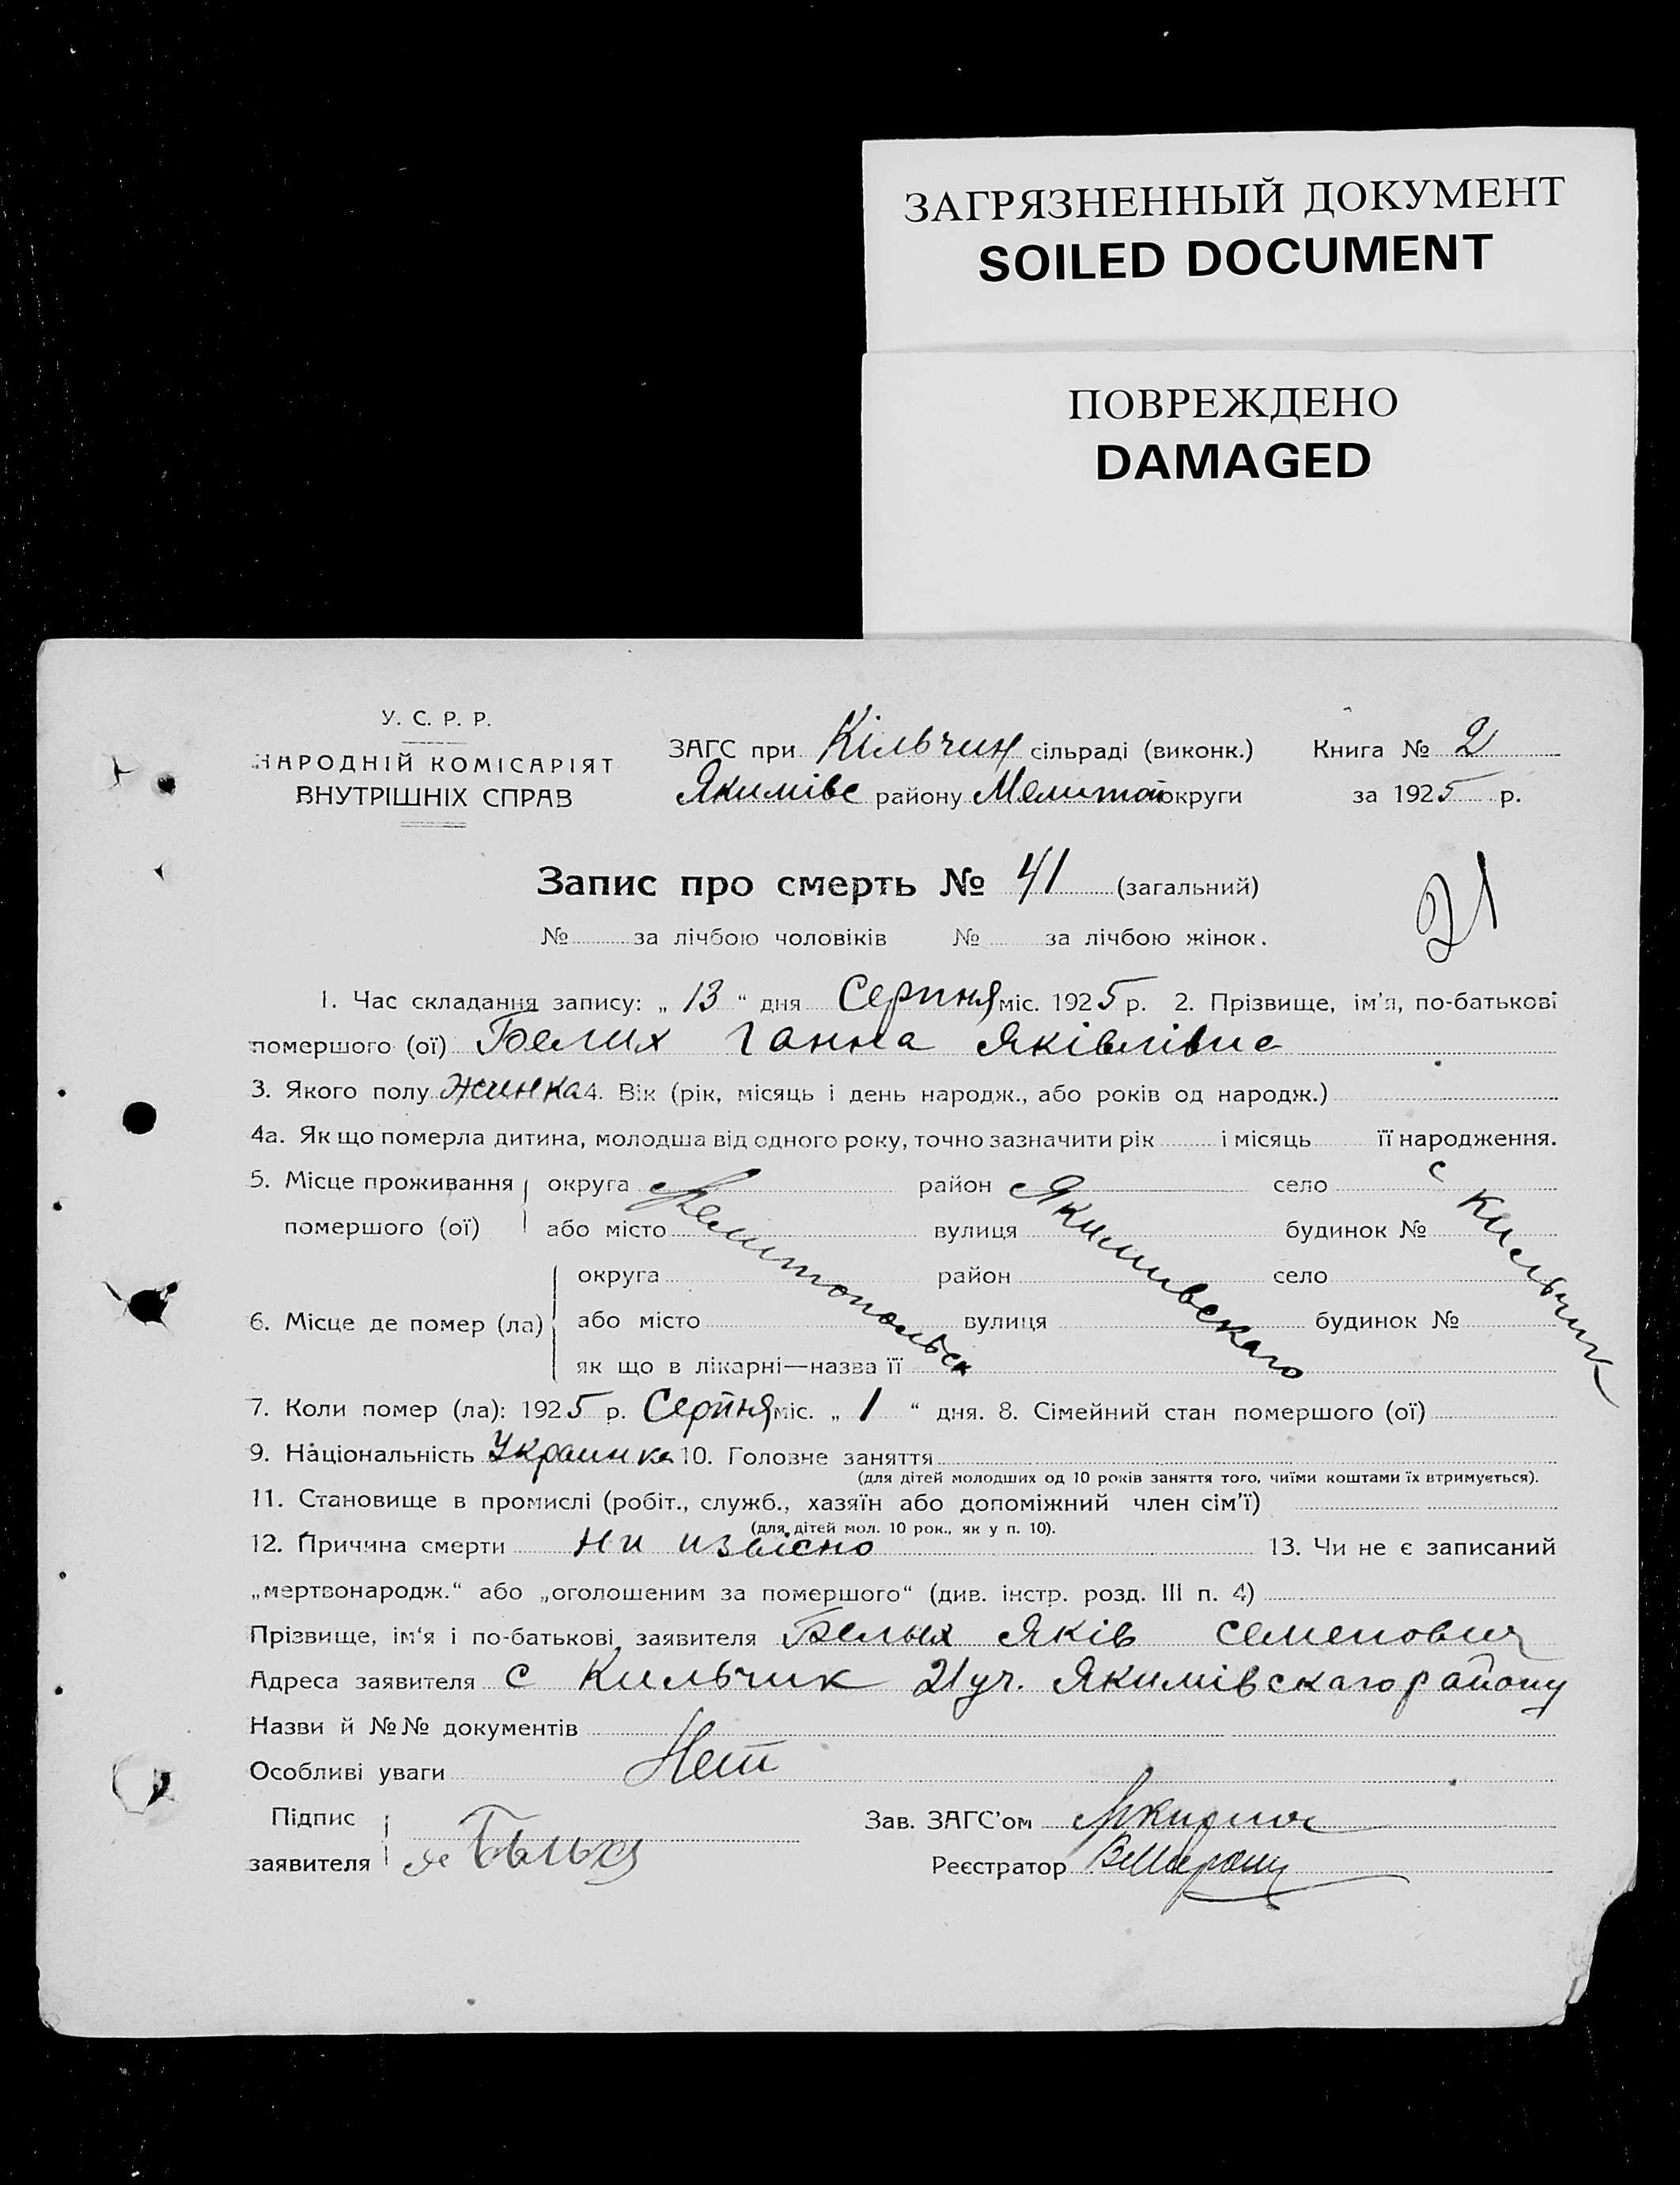 ЗАГРЯЗНЕННЫЙ ДОКУМЕНТ
SOILED DOCUMENT
ПОВРЕЖДЕНО
DAMAGED
У. С. Р. Р.
НАРОДНІЙ КОМІСАРІЯТ
ВНУТРІШНІХ СПРАВ
ЗАГС при Кільчин сільраді (виконк.)
Якимівс району Мелитоп округи
Книга № 2
за 1925 р.
Запис про смерть № 41 (загальний)
21
№ за лічбою чоловіків № за лічбою жінок.
1. Час складання запису: „ 13 “ дня Серпня міс. 1925 р. 2. Прізвище, ім'я, по-батькові
помершого (ої) Белих Ганна Яківлівна
3. Якого полу жинка 4. Вік (рік, місяць і день народж., або років од народж.)
4а. Як що померла дитина, молодша від одного року, точно зазначити рік і місяць її народження.
5. Місце проживання округа Мелитопольск район Якимивскаго село с Кильчик
помершого (ої) або місто вулиця будинок №
округа район село
6. Місце де помер (ла) або місто вулиця будинок №
як що в лікарні—назва її
7. Коли помер (ла): 1925 р. Серпня міс. „ 1 “ дня. 8. Сімейний стан помершого (ої)
9. Національність Украинка 10. Головне заняття
(для дітей молодших од 10 років заняття того, чиїми коштами їх втримується).
11. Становище в промислі (робіт., служб., хазяїн або допоміжний член сім'ї)
(для дітей мол. 10 рок., як у п. 10).
12. Причина смерти ни извісно 13. Чи не є записаний
„мертвонародж.“ або „оголошеним за помершого“ (див. інстр. розд. III п. 4)
Прізвище, ім'я і по-батькові заявителя Белых Яків Семенович
Адреса заявителя с Кильчик 21 уч. Якимівскаго району
Назви й №№ документів
Особливі уваги Нет
Підпис
заявителя
Зав. ЗАГС'ом
Реєстратор